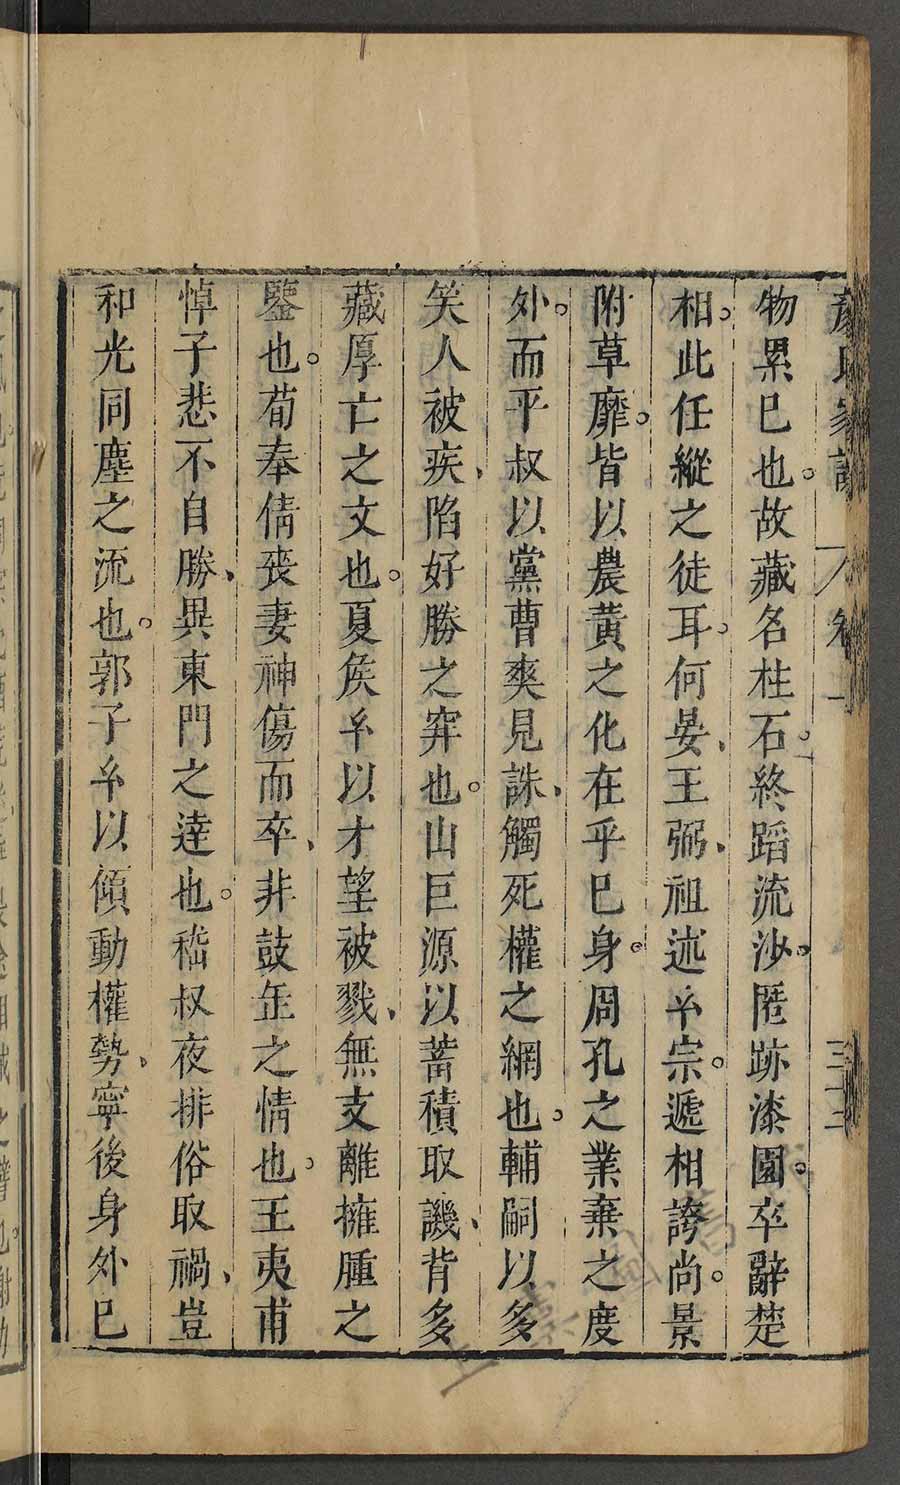 顏氏家訓 卷一
物累已也。故藏名柱石。終蹈流沙。匿跡漆園。卒辭楚
相。此任縱之徒耳。何晏、王弼、祖述玄宗。遞相誇尚。景
附草靡。皆以農黃之化在乎已身。周孔之業棄之度
外。而平叔以黨曹爽見誅、觸死權之網也。輔嗣以多
笑人被疾、陷好勝之穽也。山巨源以蓄積取譏、背多
藏厚亡之文也。夏侯玄以才望被戮、無支離擁腫之
鑒也。荀奉倩喪妻神傷而卒、非鼓缶之情也。王夷甫
悼子悲不自勝、異東門之達也。嵇叔夜排俗取禍、豈
和光同塵之流也。郭子玄以傾動權勢、寧後身外已